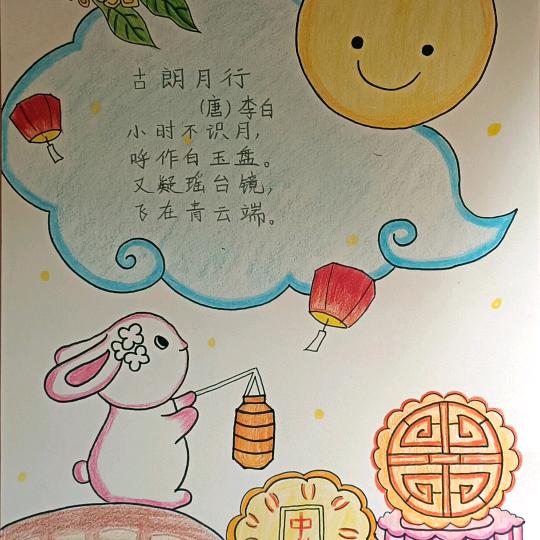 古朗月行
(唐)李白
小时不识月,
呼作白玉盘。
又疑瑶台镜,
飞在青云端。
中